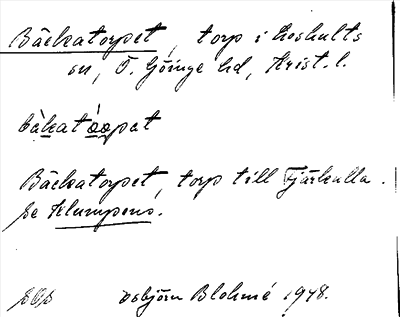 Bäckatorpet, torp i Loshults
sn, Ö. Göinge hd, Krist. l.
bäkatɷpat
Bäckatorpet, torp till Fjärkulla.
Se Klumpens.
Esbjörn Blohmé 1948.